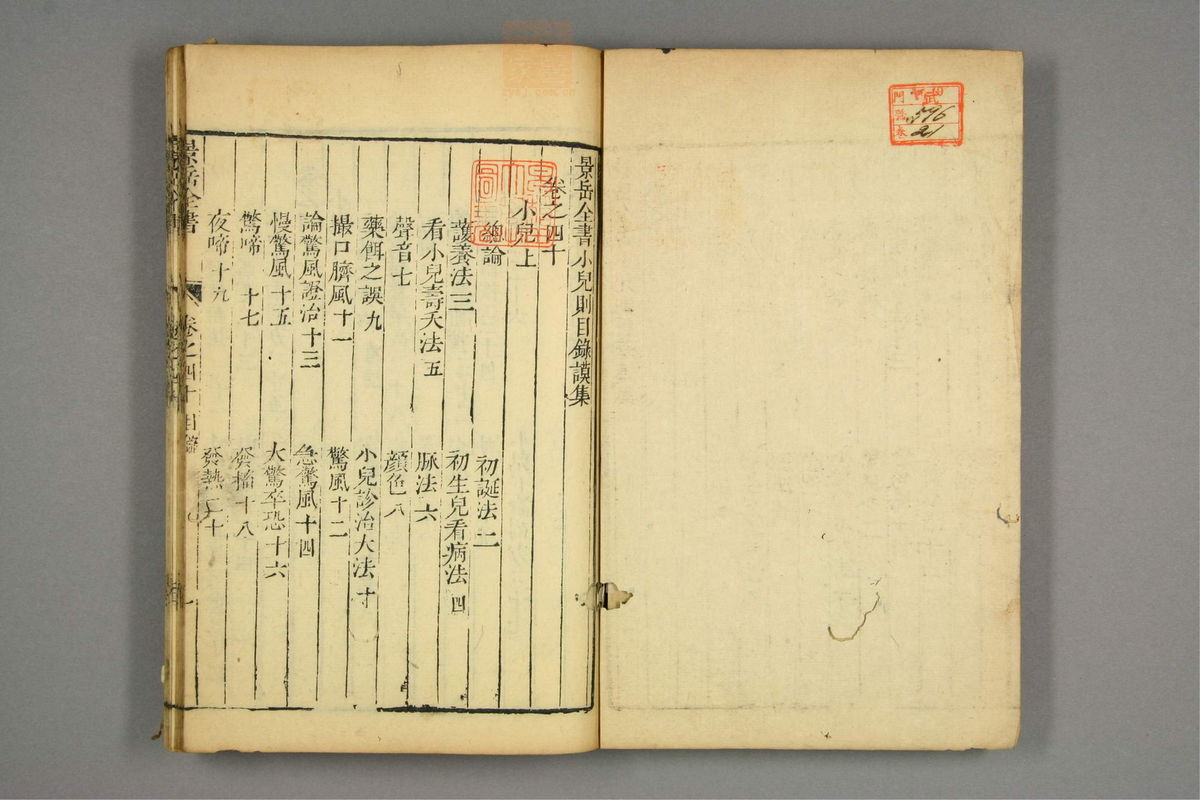 景岳全書小兒則目錄謨集
卷之四十
小兒上
總論
初誕法 二
護養法 三
初生兒看病法 四
看小兒壽夭法 五
脉法 六
聲音 七
顏色 八
藥餌之誤 九
小兒診治大法 十
撮口臍風 十一
驚風 十二
論驚風證治 十三
急驚風 十四
慢驚風 十五
大驚卒恐 十六
驚啼 十七
發搐 十八
夜啼 十九
發熱 二十
景岳全書
卷之四十 目錄
門
號 596
卷 21